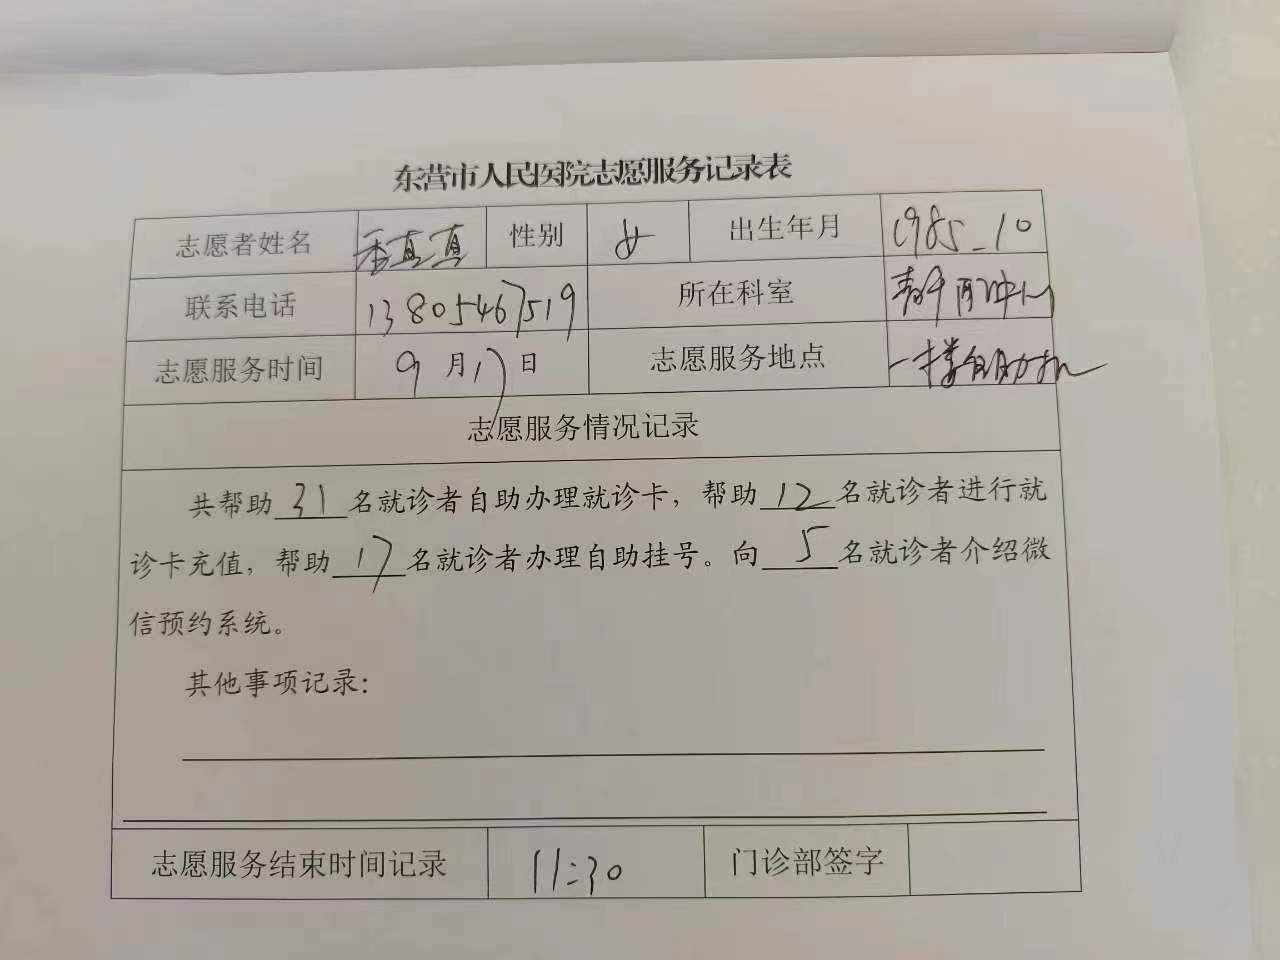 东营市人民医院志愿服务记录表
志愿者姓名 真真 性别 女 出生年月 1985-10
联系电话 13805467519 所在科室
志愿服务时间 9月17日 志愿服务地点 一楼自助机
志愿服务情况记录
共帮助31名就诊者自助办理就诊卡，帮助12名就诊者进行就
诊卡充值，帮助17名就诊者办理自助挂号。向5名就诊者介绍微
信预约系统。
其他事项记录：
志愿服务结束时间记录 11:30 门诊部签字